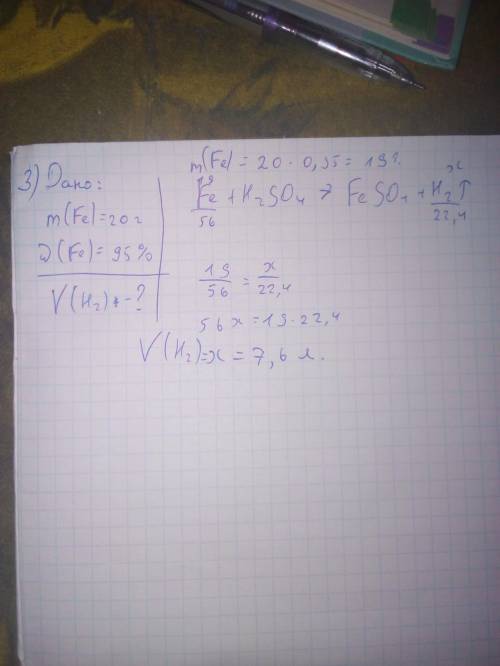 3) Дано:
m(Fe)=20г
ω(Fe)=95%
V(H₂) - ?
m(Fe) = 20 · 0,95 = 19г.
19 x
Fe + H₂SO₄ → FeSO₄ + H₂↑
56 22,4
19/56 = x/22,4
56x = 19·22,4
V(H₂)=x = 7,6 л.